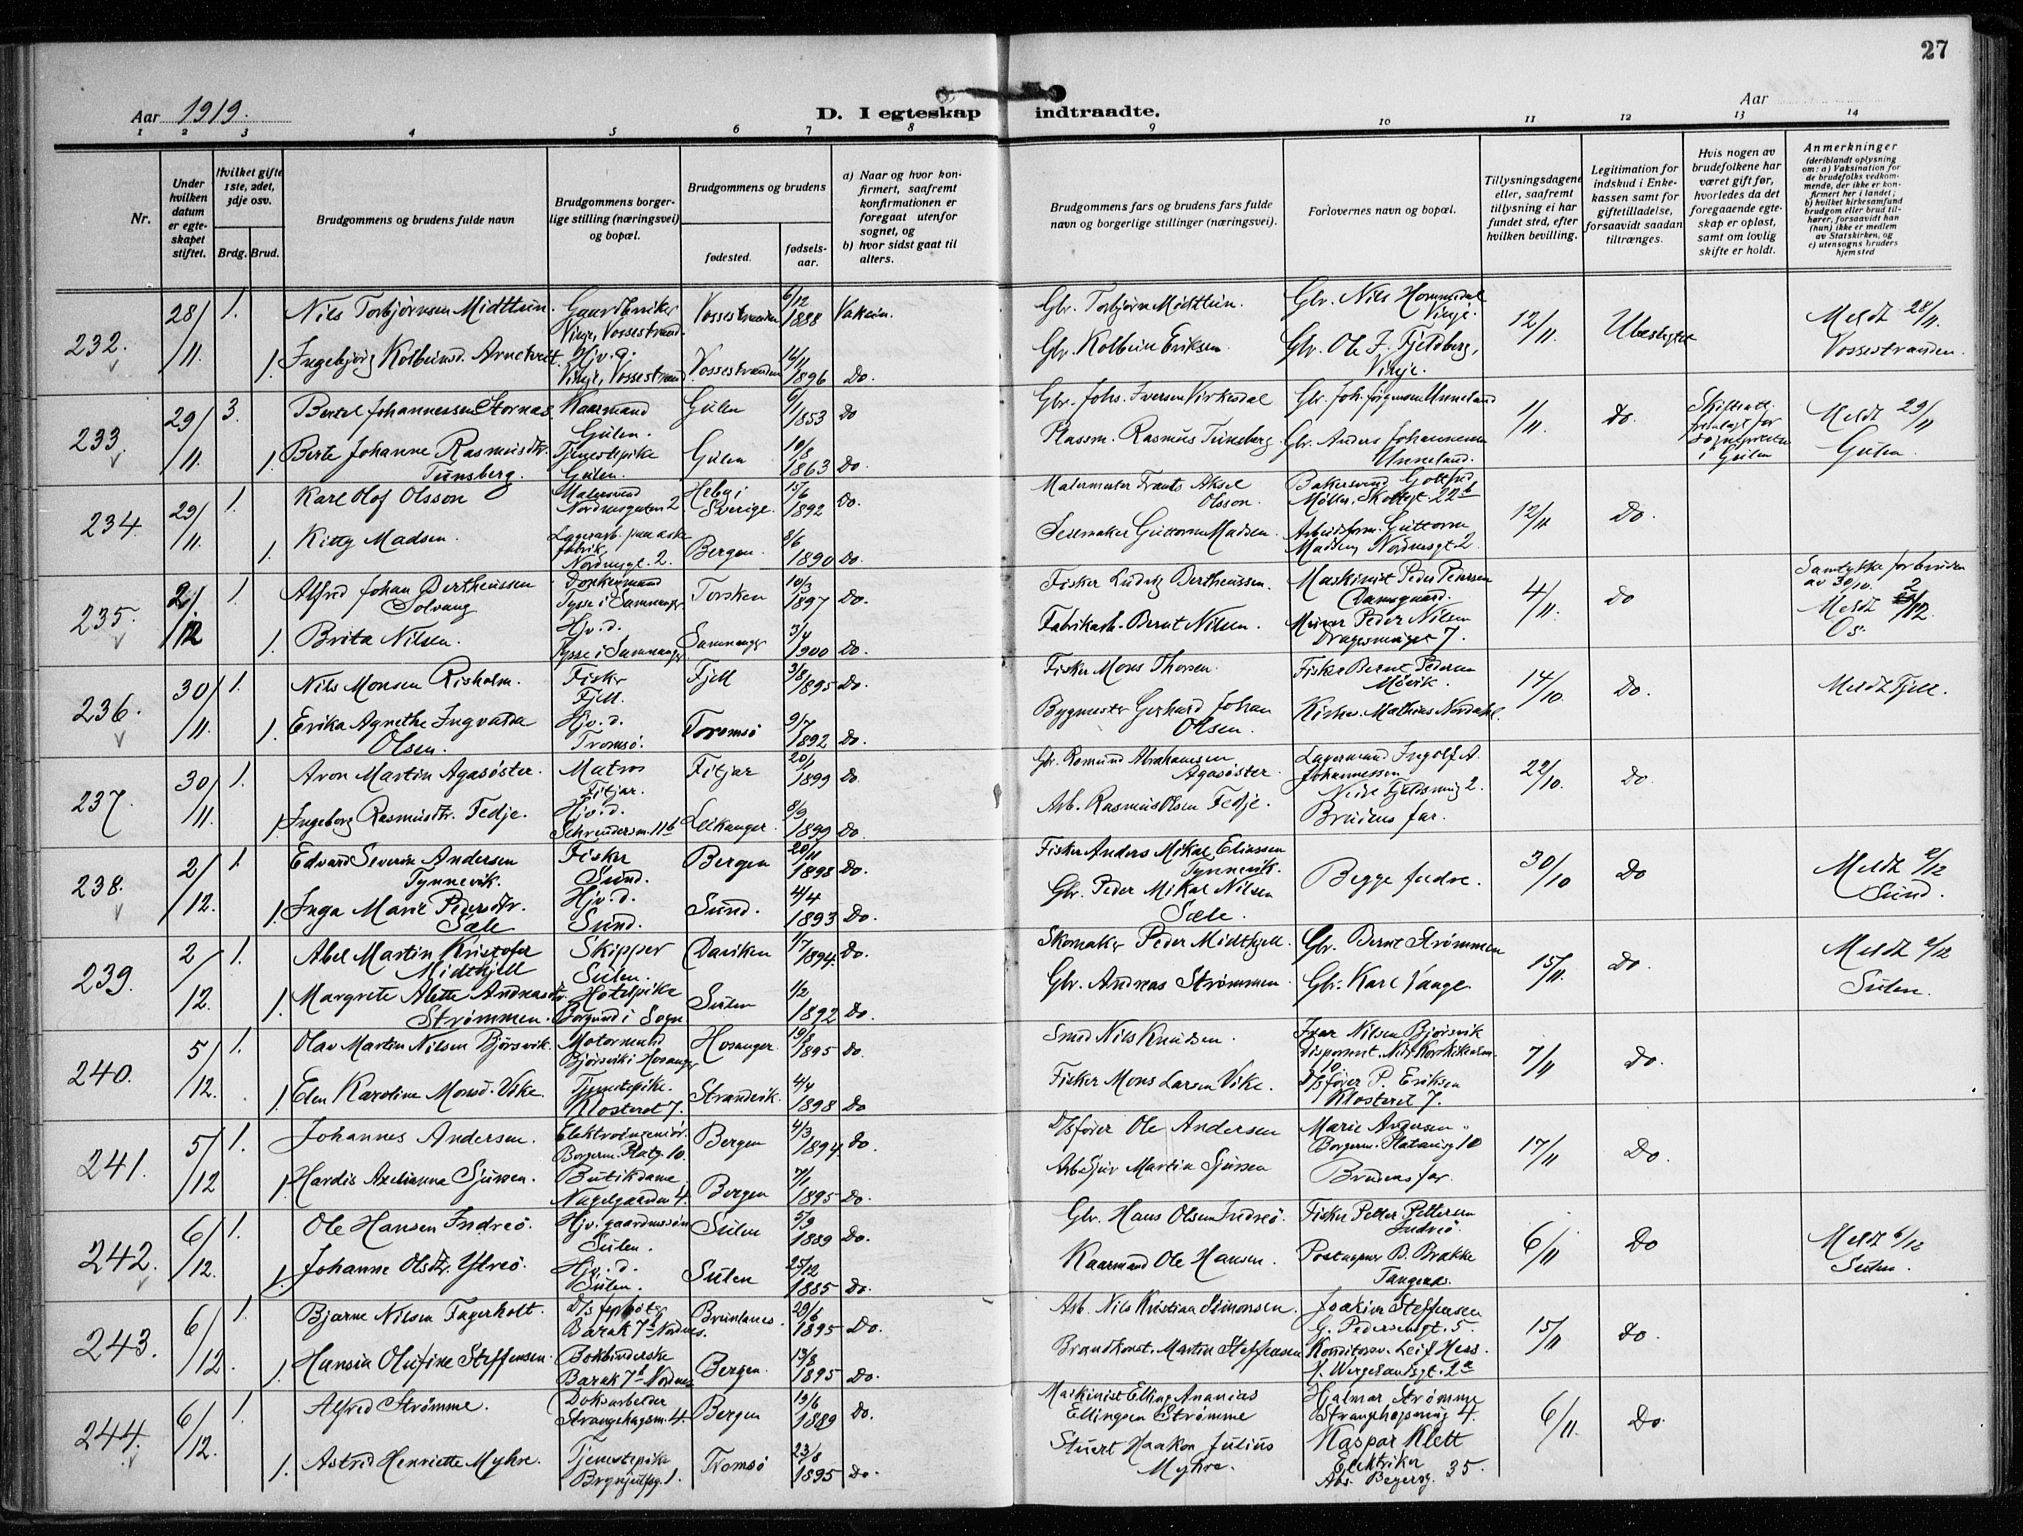 27
Aar 1919.
D. I egteskap indtraadte.
Aar
1 2 3 4 5 6 7 8 9 10 11 12 13 14
Nr.
Under hvilken datum er egteskapet stiftet.
Hvilket gifte 1ste, 2det, 3dje osv.
Brdg. Brud.
Brudgommens og brudens fulde navn
Brudgommens borgerlige stilling (næringsvei) og bopæl.
Brudgommens og brudens
fødested.
fødselsaar.
a) Naar og hvor konfirmert, saafremt konfirmationen er foregaat utenfor sognet, og
b) hvor sidst gaat til alters.
Brudgommens fars og brudens fars fulde navn og borgerlige stillinger (næringsvei).
Forlovernes navn og bopæl.
Tillysningsdagene eller, saafremt tillysning ei har fundet sted, efter hvilken bevilling.
Legitimation for indskud i Enkekassen samt for giftetilladelse, forsaavidt saadan tiltrænges.
Hvis nogen av brudefolkene har været gift før, hvorledes da det foregaaende egteskap er opløst, samt om lovlig skifte er holdt.
Anmerkninger
(deriblandt oplysning om: a) Vaksination for de brudefolks vedkommende, der ikke er konfirmert her i landet; b) hvilket kirkesamfund brudgom eller brud tilhører, forsaavidt han (hun) ikke er medlem av Statskirken, og c) utensogns bruders hjemsted
232. 28/11. 1. Nils Torbjørnsen Midttun. Gaardbruker Vinje, Vossestrand. Vossestranden 6/12 1888 Gbr. Torbjørn Midttun. Gbr. Nils Hommedal Vinje. 12/11. Ubeslegtet Meldt 28/11. Vossestranden.
1. Ingebjørg Kolbeinsd. Arnetveit. Hjv. d. Vinje, Vossestrand Vossestranden 1896 Do. Gbr. Kolbein Eriksen. Gbr. Ole J. Fjeldberg, Vinje.
233. 29/11. 3. Bertel Johannessen Stornæs Kaarmand Gulen. Gulen 6/1 1853 Do Gbr. Johs. Iversen Virkesdal Gbr. Joh. Unneland 1/11. Do. Meldt 29/11 Gulen.
1. Berte Johanne Rasmusdtr. Tunsberg. Tjenestepike Gulen. Gulen 10/8 1863 Do. Plassm. Rasmus Tunsberg. Gbr. Anders Johannesen Unneland.
234. 29/11. 1. Karl Olof Olsson Malersvend Nordnesgaten 2 Heby i Sverige. 15/6 1892 Do. Malermester Frants Aksel Olsson. Bakersvend Gotfred Møller, Skottegt. 22a 12/11 Do.
1. Kitty Madsen. Nordnesgt. 2. Bergen. 8/6 1890 Do. Seilmaker Guttorm Madsen. Arbeidsform. Guttorm Madsen, Nordnesgt 2.
235. 2/12 1. Alfred Johan Bertheussen Solvang Dokkemand Tysse i Samnanger Torsken 10/3 1897 Do. Fisker Ludvig Bertheussen. Maskinist Peder Petersen Damsgaard. 4/11. Do Samtykke for bruden av 30/10. Meldt 2/12. Os.
1. Brita Nilsen. Hjv. d. Tysse i Samnanger Samnanger 3/4 1900 Do. Fabrikarb. Bernt Nilsen. Murer Peder Nilsen Dragesmuget 7.
236. 30/11. 1. Nils Monsen Risholm. Fisker Fjell. Fjell 3/8 1895 Do. Fisker Mons Thorsen. Fisker Bernt Pedersen Møvik. 14/10 Do. Meldt Fjell.
1. Erika Agnethe Ingvarda Olsen. Hjv. d. Tromsö. Tromsö 9/7 1892 Do. Bygmester Gerhard Johan Olsen. Mathias Nordahl.
237. 30/11. 1. Aron Martin Agasøster. Matros Fitjar. Fitjar 20/1 1899 Do. Gbr. Romund Abrahamsen Agasøster. Lagermand Ingolf A. Johannessen 2. 22/10. Do.
1. Ingeborg Rasmusdtr. Fedje. Hjv. d. 11b Leikanger. 8/9 1899 Do. Arb. Rasmus Olsen Fedje. Brudens far.
238. 2/12. 1. Edvard Severin Andersen Tynnevik. Fisker Sund. Bergen 20/11 1898 Do. Fisker Anders Mikal Eliassen Tynnevik. Begge fedre. 30/10 Do Meldt 2/12 Sund.
1. Inga Marie Pedersdtr. Sæle Hjv. d. Sund. Sund. 4/4 1893 Do. Gbr. Peder Mikal Nilsen Sæle.
239. 2/12. 1. Abel Martin Kristofer Midthjell Skipper Sulen. Daviken 1/7 1894. Do. Skomaker Peder Midthjell. Gbr. Bernt Strømmen 15/11 Do. Meldt 2/12 Sulen.
1. Margrete Alette Andreasdtr. Strømmen. Hotelpike Borgund i Sogn Sulen 1/2 1892 Do. Gbr. Andreas Strømmen. Gbr. Karl Vange.
240. 5/12. 1. Olav Martin Nilsen Bjørsvik. Motormand Bjørsvik i Hosanger Hosanger. 19/8 1895 Do. Smed Nils Knudsen. Ivar Nilsen Bjørsvik 7/11 Do.
1. Elen Karoline Monsd. Vike. Tjenestepike. Klosteret 7. Strandvik. 4/4 1898 Do Fisker Mons Larsen Vike. D/sfører P. Eriksen Klosteret 7.
241. 5/12 1. Johannes Andersen. Elektroingeniør. Borgerm. Platg. 10. Bergen 4/3 1894 Do. D/sfører Ole Andersen Marie Andersen. Borgerm. Platousg 10 17/11 Do.
1. Hardis Axelianna Sjursen. Butikdame Nagelgaarden 4. Bergen 7/1 1895 Do. Arb. Sjur Martin Sjursen Brudens far.
242. 6/12. 1. Ole Hansen Indreø. Hjv. gaardmssøn Sulen. Sulen 5/9 1889 Do. Gbr. Hans Olsen Indreø. Fisker Petter Pettersen Indreö. 6/11 Do Meldt 6/12 Sulen.
1. Johanne Olsdtr. Ytreö. Hjv. d. Sulen. Sulen 25/12 1885 Do. Kaarmand Ole Hansen. B. Brække
243. 6/12. 1. Bjarne Nilsen Fagerholt. D/s fyrbøter Barak 7a Nordnes. Brunlanes. 29/6 1895 Do. Arb. Nils Kristian Simonsen. Joakim Steffensen G. Pedersensgt. 5. 15/11 Do.
1. Hansia Olufine Steffensen. Bokbinderske Barak 7a Nordnes Bergen. 13/3 1895 Do. Brandkonst. Martin Steffensen Konditorsv. Leif Hess. H. Wergelandsgt. 2a
244. 6/12. 1. Alfred Strømme. Doksarbeider Strangehagsm. 4. Bergen 19/6 1889 Do. Maskinist Elling Ananias Ellingsen Strømme Hjalmar Strømme Strangehagsmug 4. 6/11. Do.
1. Astrid Henriette Myhre. Tjenestepike 1. Tromsø 23/8 1895 Do. Stuert Haakon Julius Myhre. Kaspar Klett Elektriker 35.